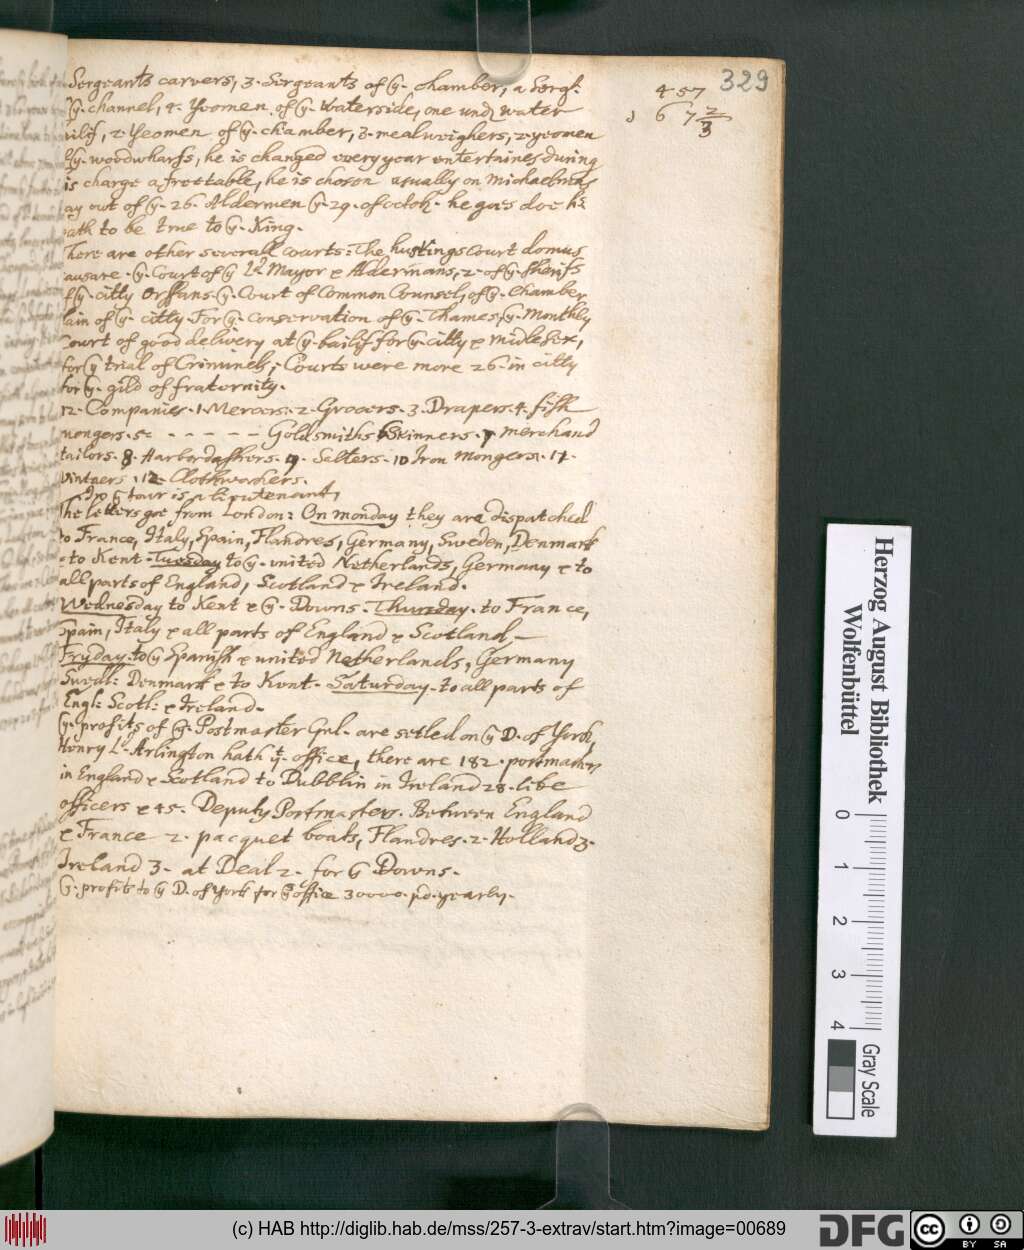 329
4 57
6 7 2/3
Sergeants carvers, 3. Sergeants of ỹ. chamber, a Serg:
ỹ. channel, 4. Yeomen of ỹ. waterside, one und water
2. Yeomen of ỹ. chamber, 3. mealweighers, 2. yeomen
ỹ. woodwharfs, he is changed every year entertaines during
is charge a free table, he is chosen usually on Michaelmas
ay out of ỹ. 26. Aldermen ỹ. 29. of octob. he goes doe his
oath to be true to ỹ. King.
There are other severall courts: The hustings court domus
ỹ. Court of ỹ Ld Mayor & Aldermans, 2. of ỹ. sherifs
of ỹ. citty Orffans. ỹ. Court of Common Counsel, of ỹ. Chamber
lain of ỹ. citty. For ỹ. conservation of ỹ. Thames, ỹ. Monthly
Court of good delivery at ỹ. bailif for ỹ. citty & midlesex,
for ỹ trial of Criminels, Courts were more 26. in citty
for ỹ. gild of fraternity.
12. Companies. 1. Mercers. 2. Grocers. 3. Drapers. 4. fish
mongers. 5. - - - - - - Goldsmiths 6 Skinners. 7 merchand
tailors. 8. Harberdashers. 9. Salters. 10 Iron mongers. 11.
vintners. 12. Clothworkers.
tour is a lieutenant,
The letters goe from London: On monday they are dispatched
to France, Italy, Spain, Flandres, Germany, Sweden, Denmark
& to Kent. Tuesday to ỹ. united Netherlands, Germany & to
all parts of England, Scotland & Ireland.
Wednesday to Kent & ỹ. Downs. Thursday. to France,
Spain, Italy & all parts of England & Scotland, —
Fryday. to ỹ Spanish & united Netherlands, Germany
Swedl: Denmark & to Kent. Saturday. to all parts of
Engl: Scotl: & Ireland.
ỹ. profits of ỹ. Postmaster Gnl. are setled on ỹ D. of York,
Henry Ld. Arlington hath yt. office, there are 182. postmasters
in England & Scotland to Dubblin in Ireland 28. like
officers & 45. Deputy Postmasters. Between England
& France 2. pacquet boats, Flandres. 2. Holland 3.
Ireland 3. at Deal 2. for ỹ Downs.
ỹ. profits to ỹ D. of York for ỹ office 30000. pd. yearly.
Herzog August Bibliothek
Wolfenbüttel
0 1 2 3 4
Gray Scale
(c) HAB http://diglib.hab.de/mss/257-3-extrav/start.htm?image=00689
DFG
cc BY SA